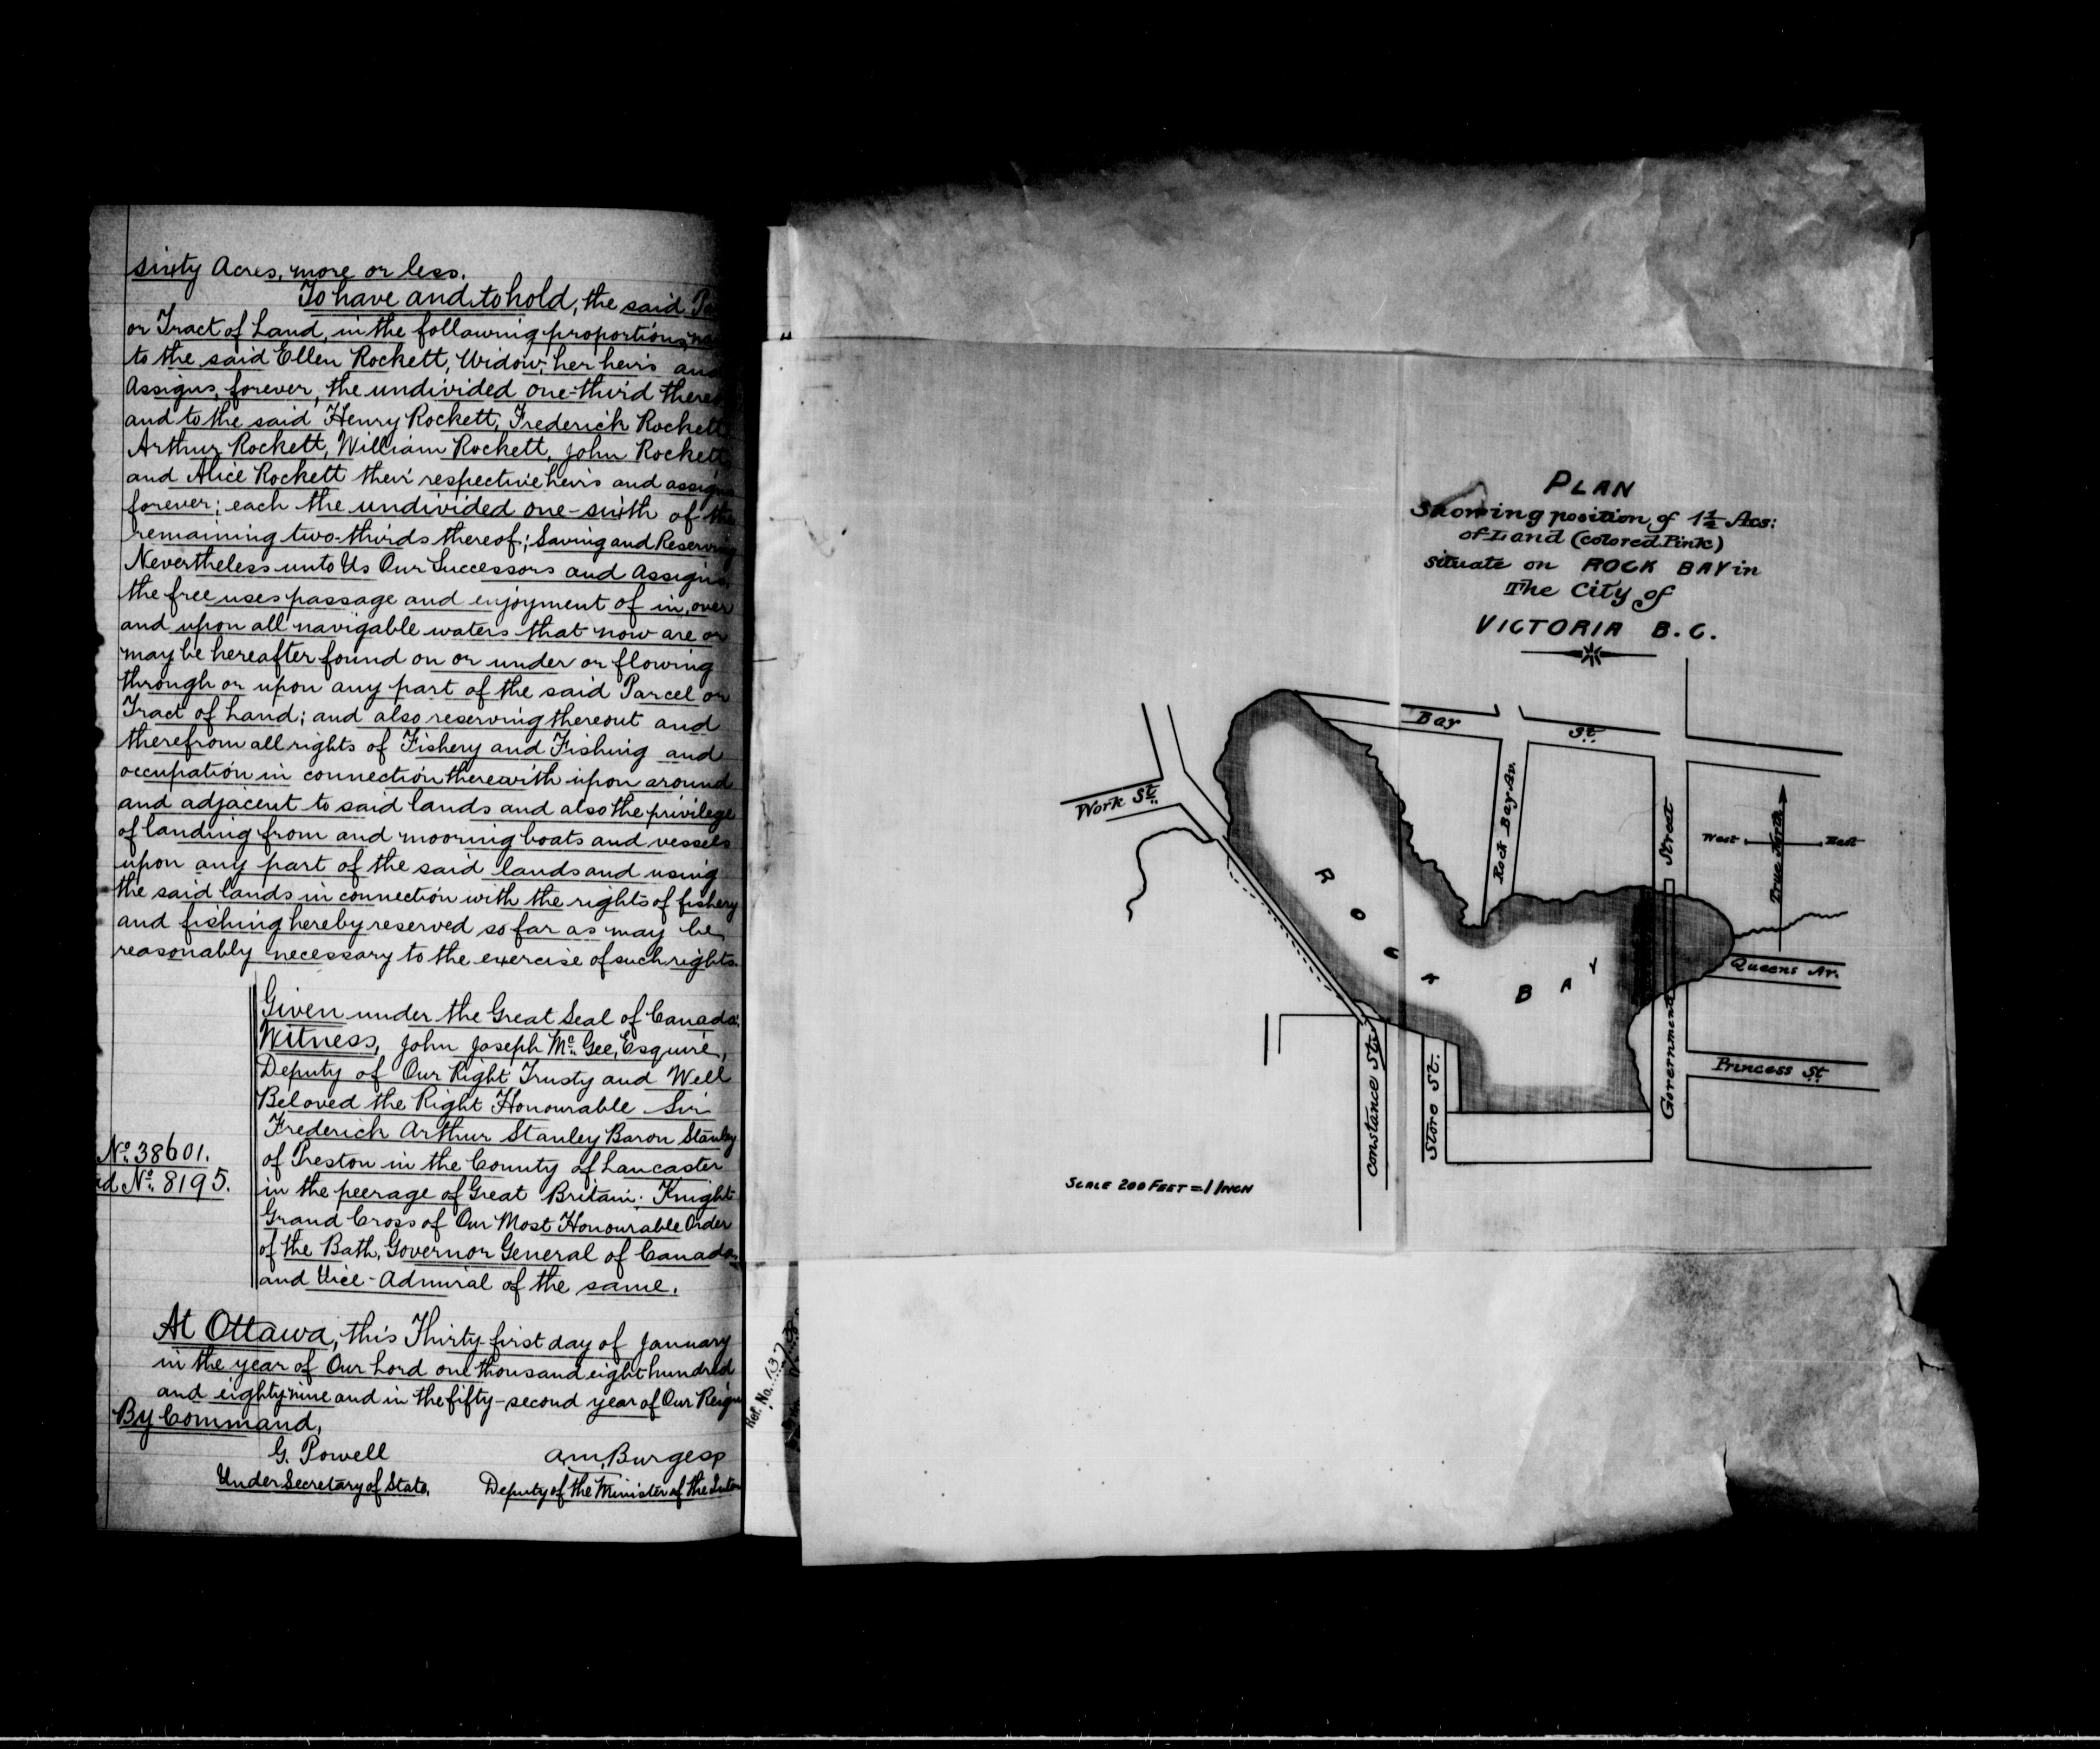 sixty Acres, more or less.
To have and to hold, the said
or Tract of Land, in the following proportions,
to the said Ellen Rockett, Widow, her heirs and
Assigns, forever, the undivided one-third
and to the said Henry Rockett, Frederick Rockett
Arthur Rockett, William Rockett, John Rockett
and Alice Rockett their respective heirs and assigns
forever; each the undivided one-sixth of the
remaining two-thirds thereof; Saving and Reserving
Nevertheless unto Us Our Successors and Assigns
the free uses passage and enjoyment of in, over
and upon all navigable waters that now are or
may be hereafter found on or under or flowing
through or upon any part of the said Parcel or
Tract of Land; and also reserving thereout and
therefrom all rights of Fishery and Fishing and
occupation in connection therewith upon around
and adjacent to said lands and also the privilege
of landing from and mooring boats and vessels
upon any part of the said lands and using
the said lands in connection with the rights of fishery
and fishing hereby reserved so far as may be
reasonably necessary to the exercise of such rights.
Given under the Great Seal of Canada.
Witness, John Joseph Mc. Gee, Esquire,
Deputy of Our Right Trusty and Well
Beloved the Right Honourable Sir
Frederick Arthur Stanley Baron Stanley
of Preston in the County of Lancaster
in the peerage of Great Britain; Knight
Grand Cross of Our Most Honourable Order
of the Bath, Governor General of Canada
and Vice-Admiral of the same.
No. 38601.
No. 8195.
At Ottawa, this Thirty-first day of January
in the year of Our Lord one thousand eight hundred
and eighty nine and in the fifty-second year of Our Reign
By Command,
G. Powell
Under Secretary of State.
A.M. Burgess
Deputy of the Minister of the
Ref. No. 137
PLAN
Showing position of 1½ Acs:
of Land (colored Pink)
situate on ROCK BAY in
The City of
VICTORIA B.C.
Bay St.
Work St.
Rock Bay Av.
Government Street
West East
True North
ROCK BAY
Queens Av.
Princess St
Constance St.
Store St.
SCALE 200 FEET = 1 INCH